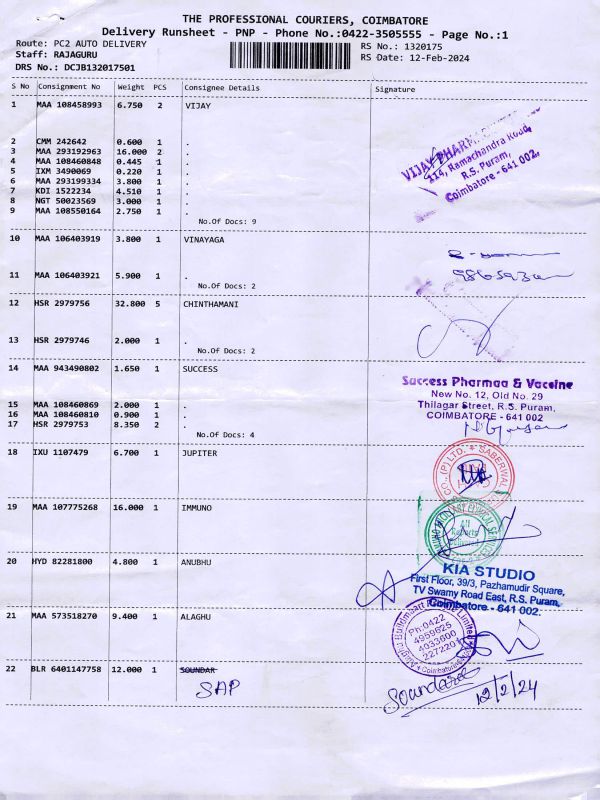 THE PROFESSIONAL COURIERS, COIMBATORE
Delivery Runsheet - PNP - Phone No.:0422-3505555 - Page No.:1
Route: PC2 AUTO DELIVERY
RS No.: 1320175
Staff: RAJAGURU
RS Date: 12-Feb-2024
DRS No.: DCJB132017501
S No Consignment No Weight PCS Consignee Details Signature
1 MAA 108458993 6.750 2 VIJAY
2 CMM 242642 0.600 1 .
3 MAA 293192963 16.000 2 .
4 MAA 108460848 0.445 1 .
5 IXM 3490069 0.220 1 .
6 MAA 293199334 3.800 1 .
7 KDI 1522234 4.510 1 .
8 NGT 50023569 3.000 1 .
9 MAA 108550164 2.750 1 .
No.Of Docs: 9
VIJAY PHARMA
114, Ramachandra Road,
R.S. Puram,
Coimbatore - 641 002.
10 MAA 106403919 3.800 1 VINAYAGA
11 MAA 106403921 5.900 1 .
No.Of Docs: 2
12 HSR 2979756 32.800 5 CHINTHAMANI
13 HSR 2979746 2.000 1 .
No.Of Docs: 2
14 MAA 943490802 1.650 1 SUCCESS
15 MAA 108460869 2.000 1 .
16 MAA 108460810 0.900 1 .
17 HSR 2979753 8.350 2 .
No.Of Docs: 4
Success Pharmaa & Vaccine
New No. 12, Old No. 29
Thilagar Street, R.S. Puram,
COIMBATORE - 641 002
18 IXU 1107479 6.700 1 JUPITER
CO., (P) LTD. * SABERWAL
19 MAA 107775268 16.000 1 IMMUNO
All
Reports
Delivered
20 HYD 82281800 4.800 1 ANUBHU
KIA STUDIO
First Floor, 39/3, Pazhamudir Square,
TV Swamy Road East, R.S. Puram,
Coimbatore - 641 002.
21 MAA 573518270 9.400 1 ALAGHU
Ph:0422
4959625
4033600
2272201
22 BLR 6401147758 12.000 1 SOUNDAR
SAP
12/2/24